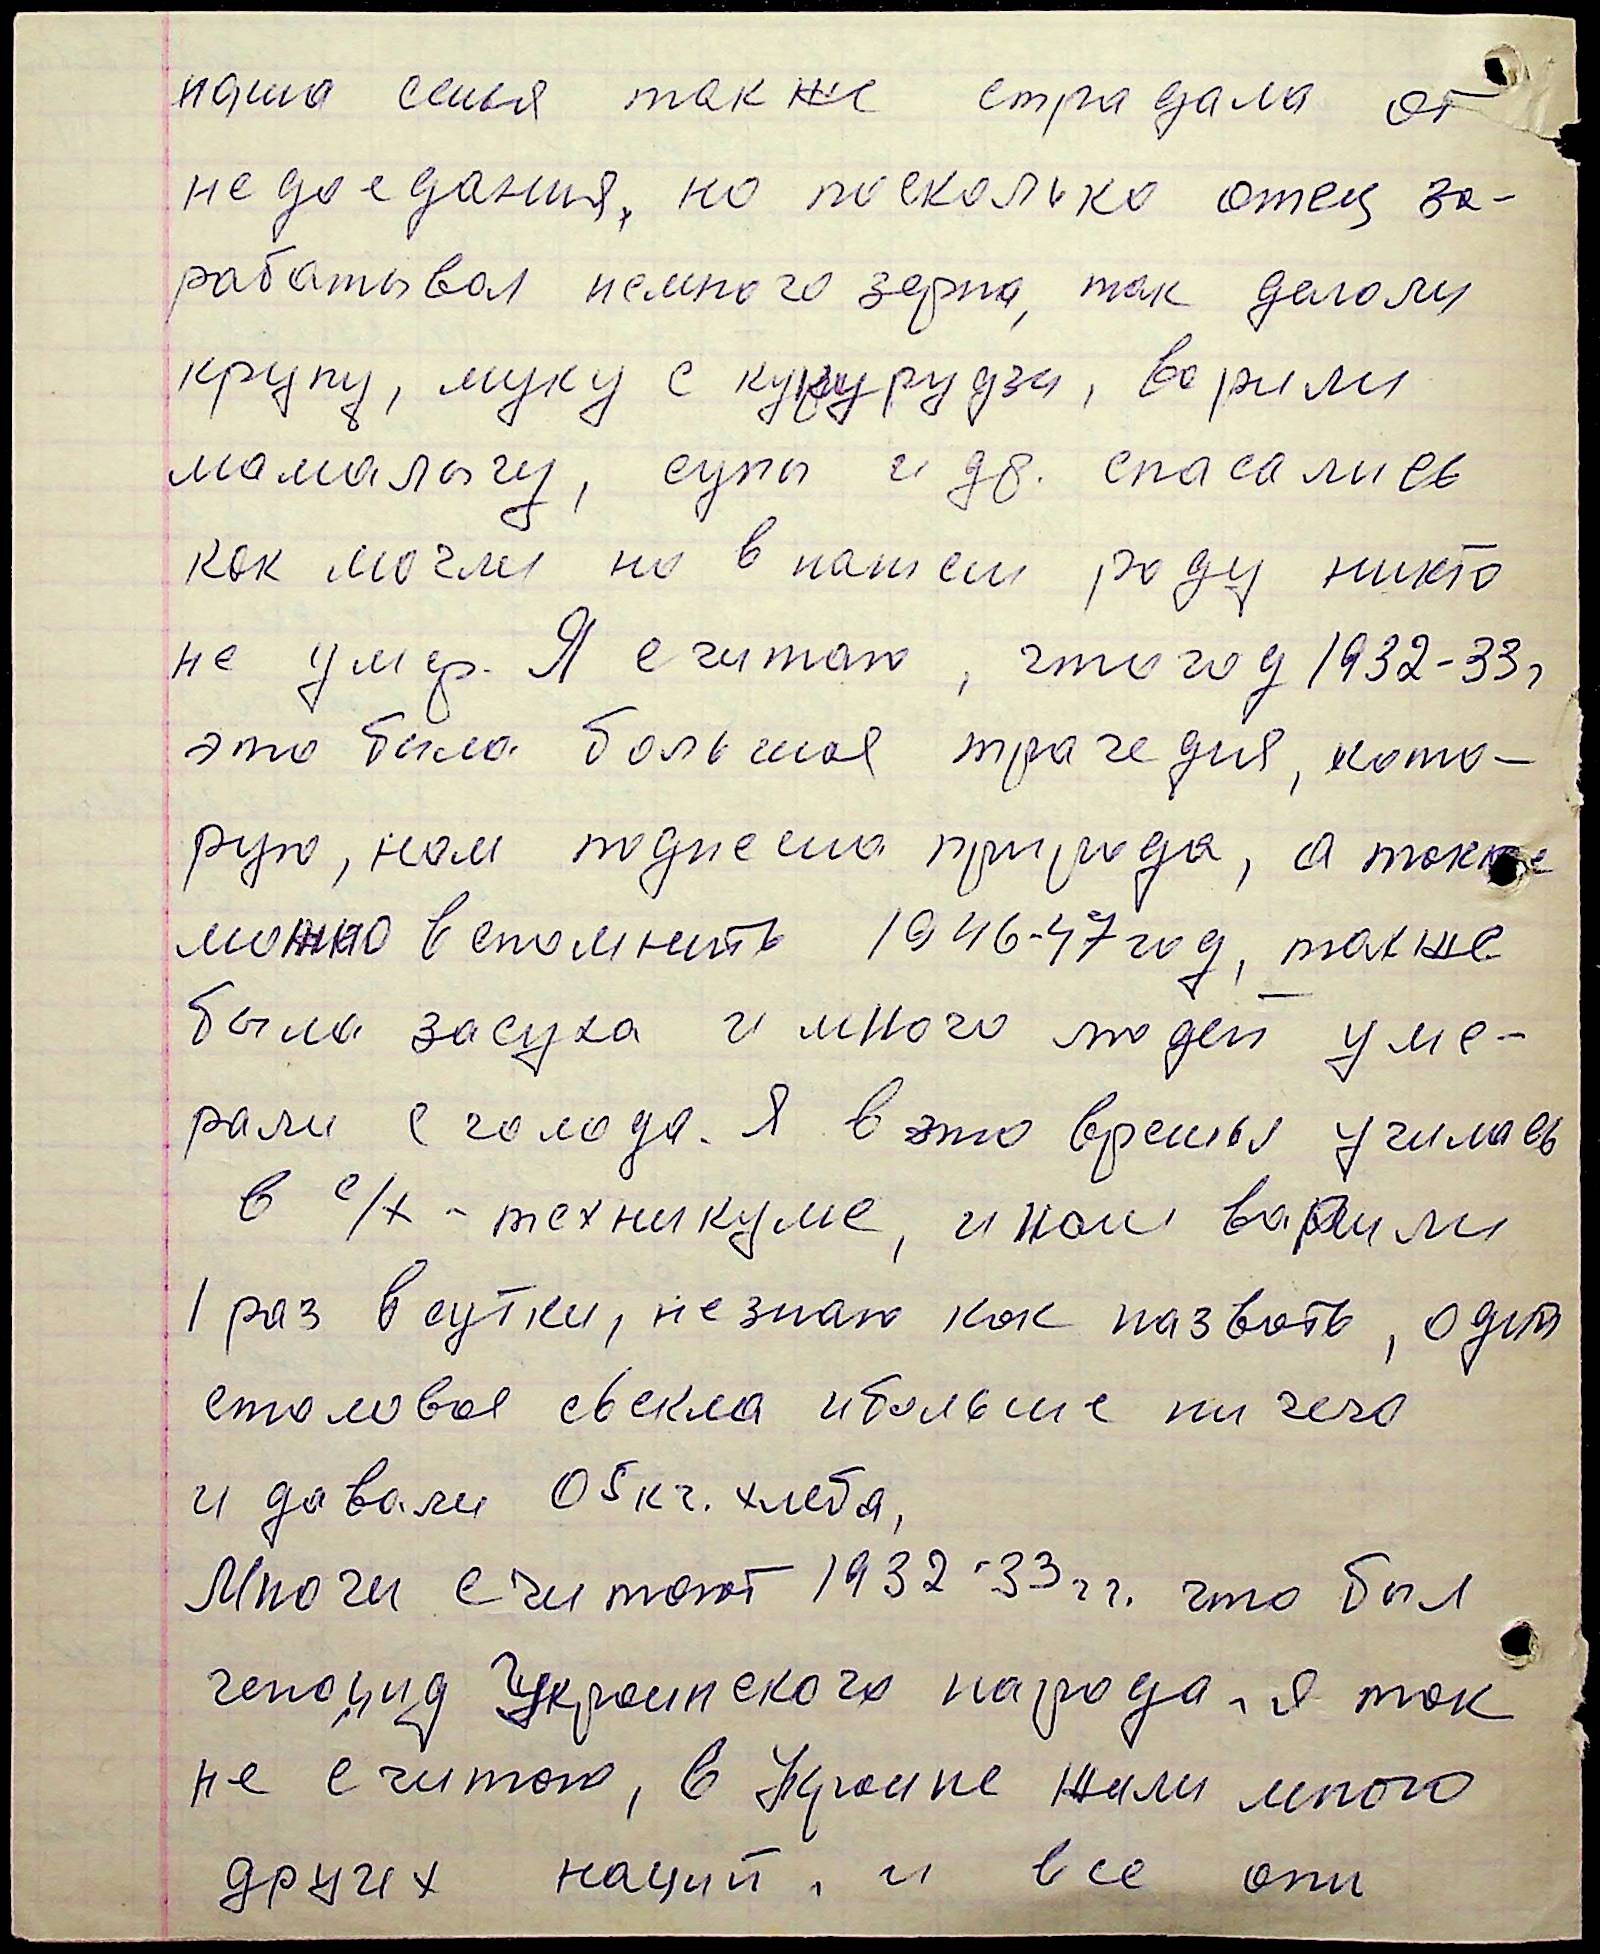 наша семья также страдала от
недоедания, но поскольку отец за-
рабатывал немного зерна, так делали
крупу, муку с кукурудзи, варили
мамалыгу, супы и др. спасались
как могли но в нашем роду никто
не умер. Я считаю, что год 1932-33г
это была большая трагедия, кото-
рую, нам поднесла природа, а также
можно вспомнить 1946-47 год, также
была засуха и много людей уме-
рали с голода. Я в это время училась
в с/х - техникуме, и нам варили
1 раз в сутки, не знаю как назвать, одна
столовая свекла и больше ничего
и давали 05 кг. хлеба,
Многи считают 1932-33 гг. что был
геноцид Украинского народа, я так
не считаю, в Украине жили много
других наций, и все они